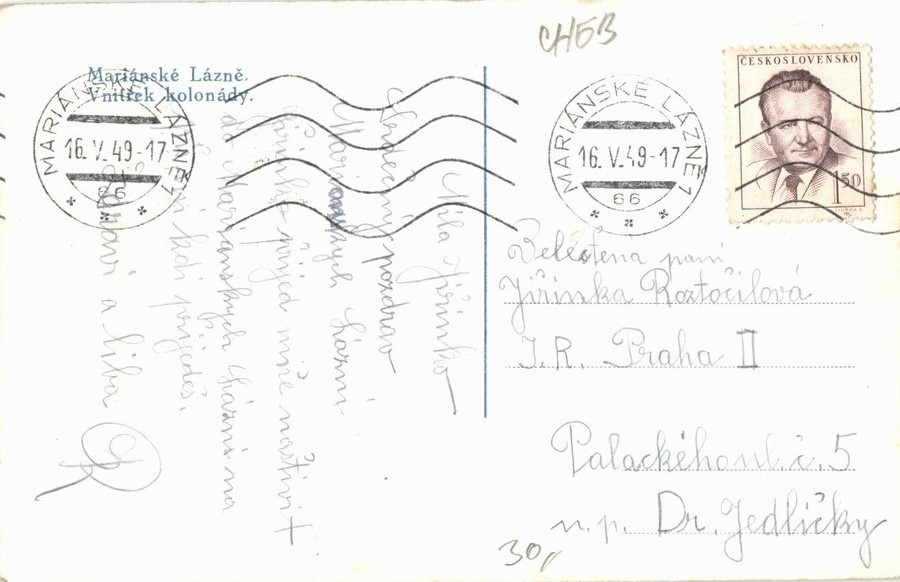 CHEB
Mariánské Lázně.
Vnitřek kolonády.
MARIÁNSKÉ LÁZNĚ 1
16. V. 49-17
66
MARIÁNSKÉ LÁZNĚ 1
16. V. 49-17
66
ČESKOSLOVENSKO
1.50
Milá Jiřinko
Srdečný pozdrav
Lázní
Jiřinko přijed mňe naštivit
do Marianských Lázní na
kdi přijedeš.
a liba
R
Velectěna pani
Jiřinka Roztočilová
J.R. Praha II
Palackého ul. č. 5
u. p. Dr. Jedličky
30,